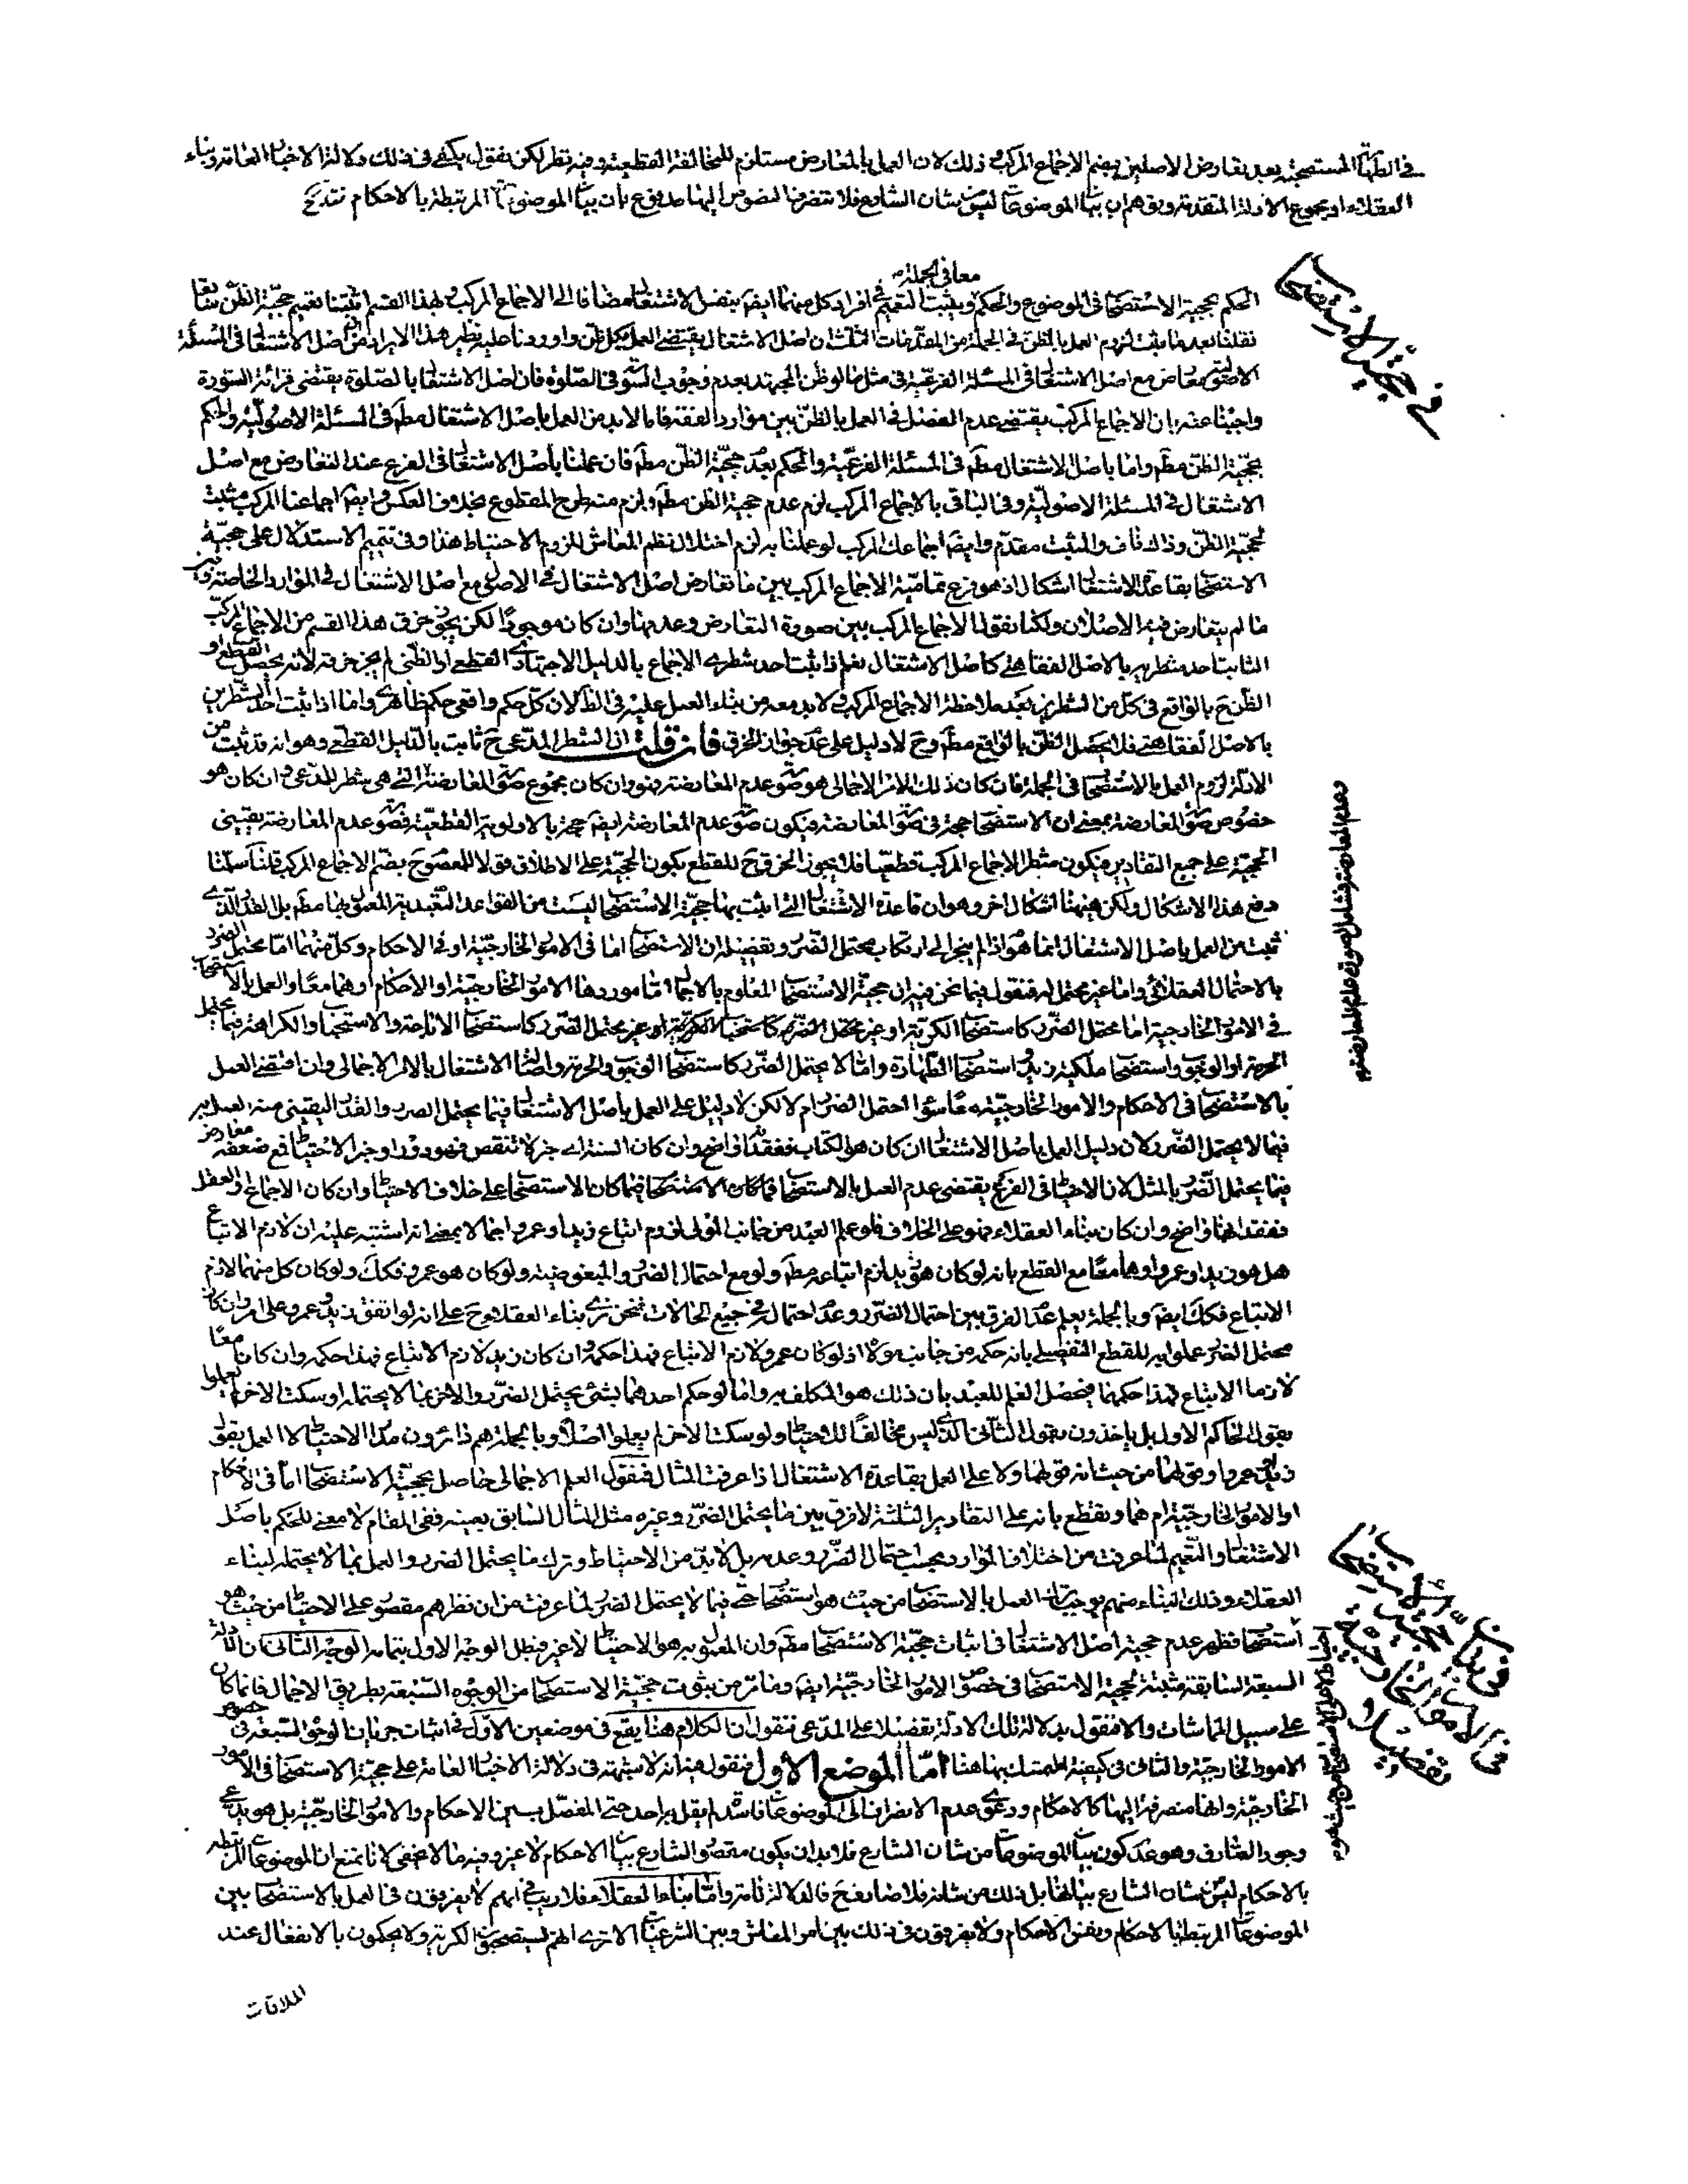 في الطهارة المستصحبة بعد تعارض الاصلين بضم الاجماع المركب وذلك لان العمل بالمعارض مستلزم للمخالفة القطعية وفيه نظر لكن نقول يكفى في ذلك دلالة الاخبار العامة وبناء
العقلاء او مجموع الادلة المتقدمة وتوهم ان بيان الموضوعات ليس من شان الشارع فلا تنصرف النصوص اليها مدفوع بان بيان الموضوعات المرتبطة بالاحكام
في حجية الاستصحاب
معا في الجملة
الحكم بحجية الاستصحاب في الموضوع والحكم ويثبت التعميم في افراد كل منهما ايضا بنفس الاشتغال مضافا الى الاجماع المركب لهذا القسم اثبتنا تعميم حجية الظن سابقا
فقلنا بعد ما ثبت لزوم العمل بالظن في الجملة من المقدمات الثلث ان اصل الاشتغال يقتضى العمل بكل ظن واوردنا عليه نظير هذا الايراد من ان اصل الاشتغال في المسئلة
الاصولية معارض مع اصل الاشتغال في المسئلة الفرعية في مثل ما لو ظن المجتهد بعدم وجوب السورة في الصلوة فان اصل الاشتغال بالصلوة يقتضى قرائة السورة
واجبنا عنه بان الاجماع المركب يقتضى عدم الفصل في العمل بالظن بين موارد الفقه فاما لابد من العمل باصل الاشتغال مطلقا في المسئلة الاصولية والحكم
بحجية الظن مطم واما باصل الاشتغال مطم في المسئلة الفرعية والحكم بعدم حجية الظن مطم فان عملنا باصل الاشتغال في الفرع عند التعارض مع اصل
الاشتغال في المسئلة الاصولية وفي الباقي بالاجماع المركب لزم عدم حجية الظن مطم ولزم منه طرح المقطوع بخلاف العكس وايضا اجماعنا المركب مثبت
لحجية الظن وذاك ناف والمثبت مقدم وايضا اجماعك المركب لو عملنا به لزم اختلال نظم المعاش للزوم الاحتياط هذا وفي تتميم الاستدلال على حجية
الاستصحاب بقاعدة الاشتغال اشكال اذ هو فرع تمامية الاجماع المركب بين ما تعارض اصل الاشتغال في الاصولي مع اصل الاشتغال في الموارد الخاصة وبين
ما لم يتعارض فيه الاصلان ولكنا نقول الاجماع المركب بين صورة التعارض وعدمها وان كان موجودا لكن يجوز خرق هذا القسم من الاجماع المركب
الثابت احد شطريه بالاصل الفقاهتي كاصل الاشتغال نعم اذا ثبت احد شطرى الاجماع بالدليل الاجتهادى القطعى او الظنى لم يجز خرقه لانه يحصل القطع او
الظن ح بالواقع في كل من الشطرين بعد ملاحظة الاجماع المركب ولابد معه من بناء العمل عليه في الظاهر لان كل حكم واقعى حكم ظاهرى واما اذا ثبت احد الشطرين
بالاصل الفقاهتى فلا يحصل الظن بالواقع مطم وح لا دليل على عدم جواز الخرق فان قلت ان الشطر المدعى ح ثابت بالدليل القطعى وهو انه قد ثبت من
الادلة لزوم العمل بالاستصحاب في الجملة فان كان ذلك الامر الاجمالى هو صورة عدم المعارضة فهو وان كان مجموع صورتى المعارضة التي هي شطر المدعى وان كان هو
خصوص صورة المعارضة بمعنى ان الاستصحاب حجة في صورة المعارضة فيكون صورة عدم المعارضة ايضا حجة بالاولوية القطعية فصورة عدم المعارضة يقينى
الحجية على جميع التقادير فيكون شطر الاجماع المركب قطعيا فلا يجوز الخرق ح للقطع بكون الحجية على الاطلاق قولا للمعصوم ح بضم الاجماع المركب قلنا سلمنا
دفع هذا الاشكال ولكن هيهنا اشكال اخر وهو ان قاعدة الاشتغال التى اثبت بها حجية الاستصحاب ليست من القواعد التعبدية المعمول بها مطم بل القدر الذى
ثبت من العمل باصل الاشتغال انما هو اذا لم ينجر الى ارتكاب محتمل الضرر وتفصيله ان الاستصحاب اما في الامور الخارجية او في الاحكام وكل منهما اما محتمل الضرر
بالاحتمال العقلائى واما غير محتمل له فنقول فيما نحن فيه ان حجية الاستصحاب المعلوم بالاجمال اما موردها الامور الخارجية او الاحكام او هما معا والعمل بالاستصحاب
في الامور الخارجية اما محتمل الضرر كاستصحاب الكرية او غير محتمل الضرر كاستصحاب الاباحة والاستحباب والكراهة فيما يحتمل
الحرمة او الوجوب واستصحاب ملكية زيد واستصحاب الطهارة واما لا يحتمل الضرر كاستصحاب الوجوب والحرمة واصالة الاشتغال بالامر الاجمالى وان اقتضى العمل
بالاستصحاب في الاحكام والامور الخارجية معا سواء احتمل الضرر ام لا لكن لا دليل على العمل باصل الاشتغال فيما يحتمل الضرر والقدر اليقينى منه العمل به
فيما لا يحتمل الضرر لان دليل العمل باصل الاشتغال ان كان هو الكتاب ففقده واضح وان كان السنة اى خبر لا تنقض فهو دور او خبر الاحتياط فمع ضعفه معارض
فيما يحتمل الضرر بالمثل لان الاحتياط في الفرع يقتضى عدم العمل بالاستصحاب فيما كان الاستصحاب على خلاف الاحتياط وان كان الاجماع او العقل
ففقدهما واضح وان كان بناء العقلاء فهو على الخلاف فلو علم العبد من جانب المولى لزوم اتباع زيد او عمرو اجمالا بمعنى انه اشتبه عليه ان لازم الاتباع
هل هو زيد او عمرو او هما معا مع القطع بانه لو كان هو زيد لزم اتباعه مطم ولو مع احتمال الضرر والمبغوضية ولو كان هو عمرو فكك ولو كان كل منهما لازم
الاتباع فكك ايضا وبالجملة يعلم عدم الفرق بين احتمال الضرر وعدم احتماله في جميع الحالات فنحن نرى بناء العقلاء ح على انه لو اتفق زيد وعمرو على امر وان كان
محتمل الضرر عملوا به للقطع التفصيلى بانه حكمه من جانب مولاه اذ لو كان عمرو لازم الاتباع فهذا حكمه وان كان زيد لازم الاتباع فهذا حكمه وان كانا معا
لازما الاتباع فهذا حكمهما فيحصل العلم للعبد بان ذلك هو المكلف به واما لو حكم احدهما بشئ يحتمل الضرر والاخر بما لا يحتمله او سكت الاخر لم يعملوا
بقول الحاكم الاول بل ياخذون بقول الثانى الذى ليس مخالفا للاحتياط ولو سكت الاخر لم يعملوا اصلا وبالجملة هم دائرون مدار الاحتياط لا العمل بقول
زيد او عمرو او قولهما من حيث انه قولهما ولا على العمل بقاعدة الاشتغال اذا عرفت المثال فنقول العلم الاجمالى حاصل بحجية الاستصحاب اما في الاحكام
او الامور الخارجية ام هما ونقطع بانه على التقادير الثلثة لا فرق بين ما يحتمل الضرر وغيره مثل المثال السابق بعينه ففى المقام لا معنى للحكم باصل
الاشتغال والتعميم لما عرفت من اختلاف الموارد بحسب احتمال الضرر وعدمه بل لابد من الاحتياط وترك ما يحتمل الضرر والعمل بما لا يحتمله لبناء
العقلاء وذلك البناء منهم لا يوجب العمل بالاستصحاب من حيث هو استصحاب حتى فيما لا يحتمل الضرر لما عرفت من ان نظرهم مقصور على الاحتياط من حيث هو
استصحاب فظهر عدم حجية اصل الاشتغال في اثبات حجية الاستصحاب مطم وان المعمول به هو الاحتياط لا غير فبطل الوجه الاول بتمامه الوجه الثانى ان الادلة
السبعة السابقة مثبتة لحجية الاستصحاب في خصوص الامور الخارجية ايضا وما مر من ثبوت حجية الاستصحاب من الوجوه السبعة بطريق الاجمال فانما كان
على سبيل المماشات والا فنقول بدلالة تلك الادلة تفصيلا على المدعى فنقول ان الكلام هنا يقع في موضعين الاول في اثبات جريان الوجوه السبعة في خصوص
الامور الخارجية والثانى في كيفية التمسك بها هنا اما الموضع الاول فنقول فيه انه لا شبهة في دلالة الاخبار العامة على حجية الاستصحاب في الامور
الخارجية وانها منصرفة اليها كالاحكام ودعوى عدم الانصراف الى الموضوعات فاسد لم يقل به احد حتى المفصل بين الاحكام والامور الخارجية بل هو يدعى
وجود الصارف وهو عدم كون بيان الموضوعات من شان الشارع فلابد ان يكون مقصود الشارع بيان الاحكام لا غير وفيه ما لا يخفى لانا نمنع ان الموضوعات المرتبطة
بالاحكام ليس من شان الشارع بيانها بل ذلك من شانه فلا صارف ح فالدلالة تامة واما بناء العقلاء فلا ريب في انهم لا يفرقون في العمل بالاستصحاب بين
الموضوعات المرتبطة بالاحكام ونفس الاحكام ولا يفرقون في ذلك بين امور المعاش وبين الشرعيات الا ترى انهم يستصحبون الكرية ولا يحكمون بالانفعال عند
الملاقات